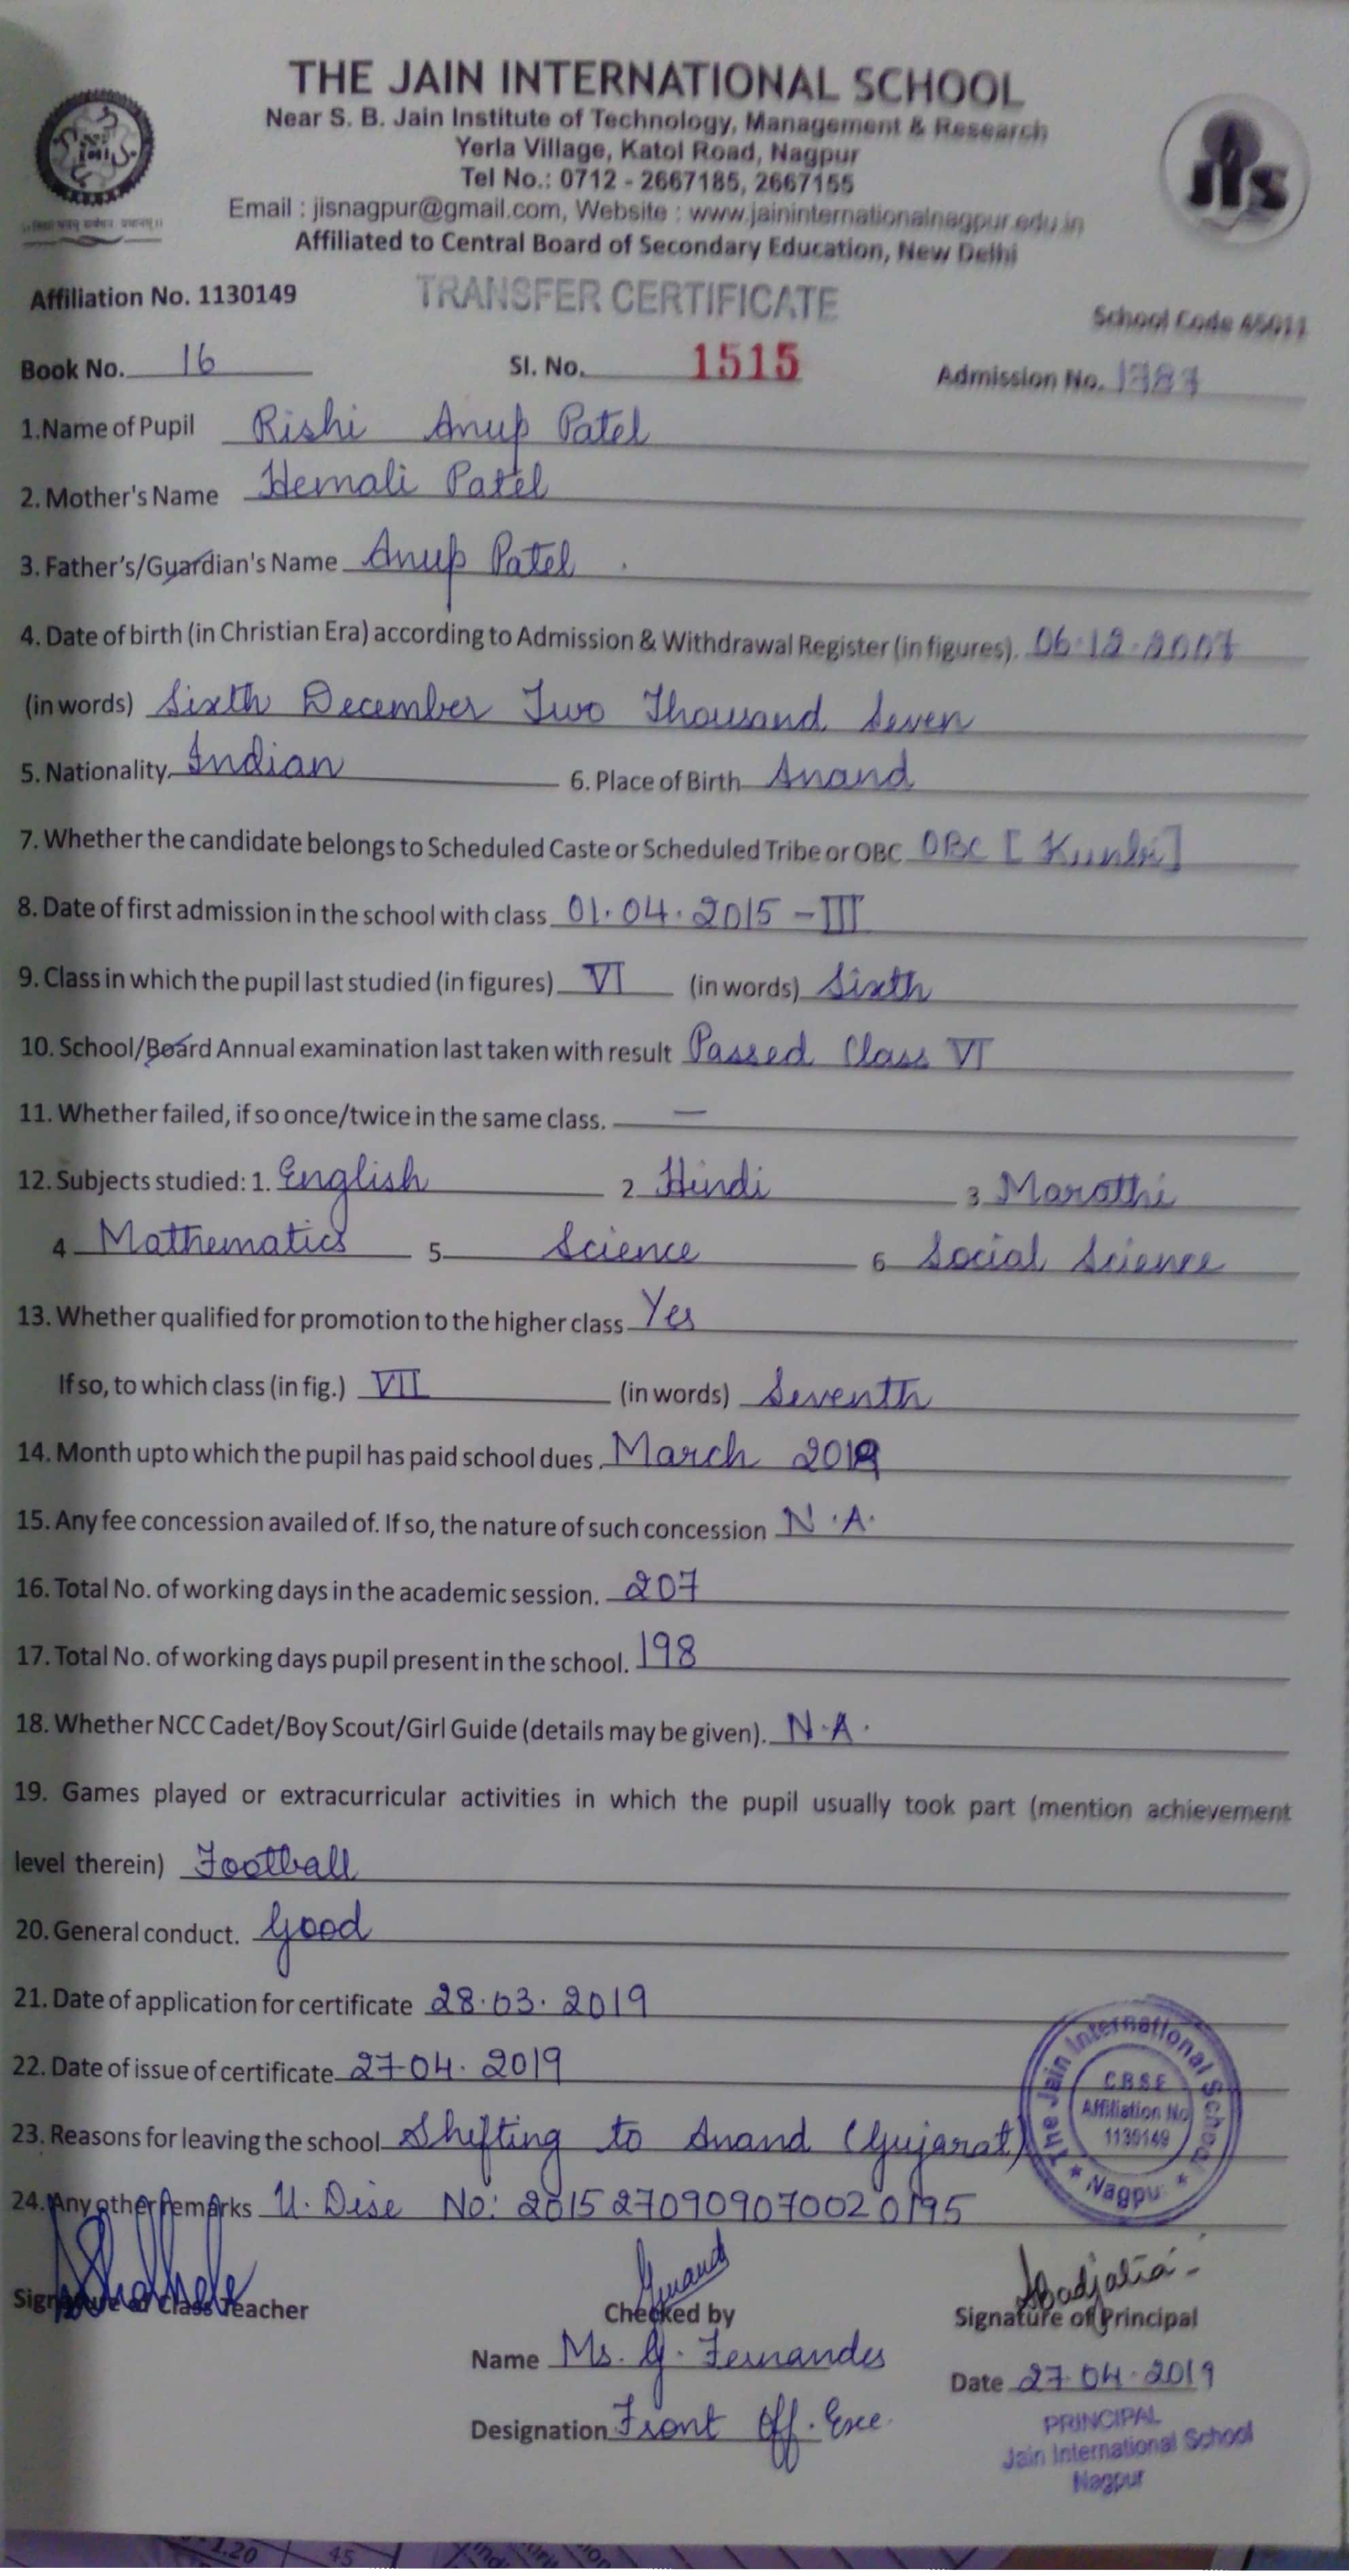 THE JAIN INTERNATIONAL SCHOOL
Near S. B. Jain Institute of Technology, Management & Research
Yerla Village, Katol Road, Nagpur
Tel No.: 0712 - 2667185, 2667155
Email : jisnagpur@gmail.com, Website : www.jaininternationalnagpur.edu.in
Affiliated to Central Board of Secondary Education, New Delhi
jIs
Affiliation No. 1130149 TRANSFER CERTIFICATE School Code 45011
Book No. 16 Sl. No. 1515 Admission No. 1787
1.Name of Pupil Rishi Anup Patel
2. Mother's Name Hemali Patel
3. Father's/Guardian's Name Anup Patel
4. Date of birth (in Christian Era) according to Admission & Withdrawal Register (in figures). 06.12.2007
(in words) Sixth December Two Thousand Seven
5. Nationality. Indian 6. Place of Birth Anand
7. Whether the candidate belongs to Scheduled Caste or Scheduled Tribe or OBC OBC [Kunbi]
8. Date of first admission in the school with class 01.04.2015 - III
9. Class in which the pupil last studied (in figures) VI (in words) Sixth
10. School/Board Annual examination last taken with result Passed Class VI
11. Whether failed, if so once/twice in the same class. —
12. Subjects studied: 1. English 2 Hindi 3 Marathi
4 Mathematics 5 Science 6 Social Science
13. Whether qualified for promotion to the higher class Yes
If so, to which class (in fig.) VII (in words) Seventh
14. Month upto which the pupil has paid school dues. March 2019
15. Any fee concession availed of. If so, the nature of such concession N.A.
16. Total No. of working days in the academic session. 207
17. Total No. of working days pupil present in the school. 198
18. Whether NCC Cadet/Boy Scout/Girl Guide (details may be given). N.A.
19. Games played or extracurricular activities in which the pupil usually took part (mention achievement
level therein) Football
20. General conduct. Good
21. Date of application for certificate 28.03.2019
22. Date of issue of certificate 27-04.2019
23. Reasons for leaving the school Shifting to Anand (Gujarat)
24. Any other remarks U. Dise No: 2015270909070020195
The Jain International School
C.B.S.E
Affiliation No
1130149
* Nagpur *
Signature of Class Teacher Checked by Signature of Principal
Name Ms. G. Fernandes
Date 27.04.2019
Designation Front Off. Exe.
PRINCIPAL
Jain International School
Nagpur
1.20 45